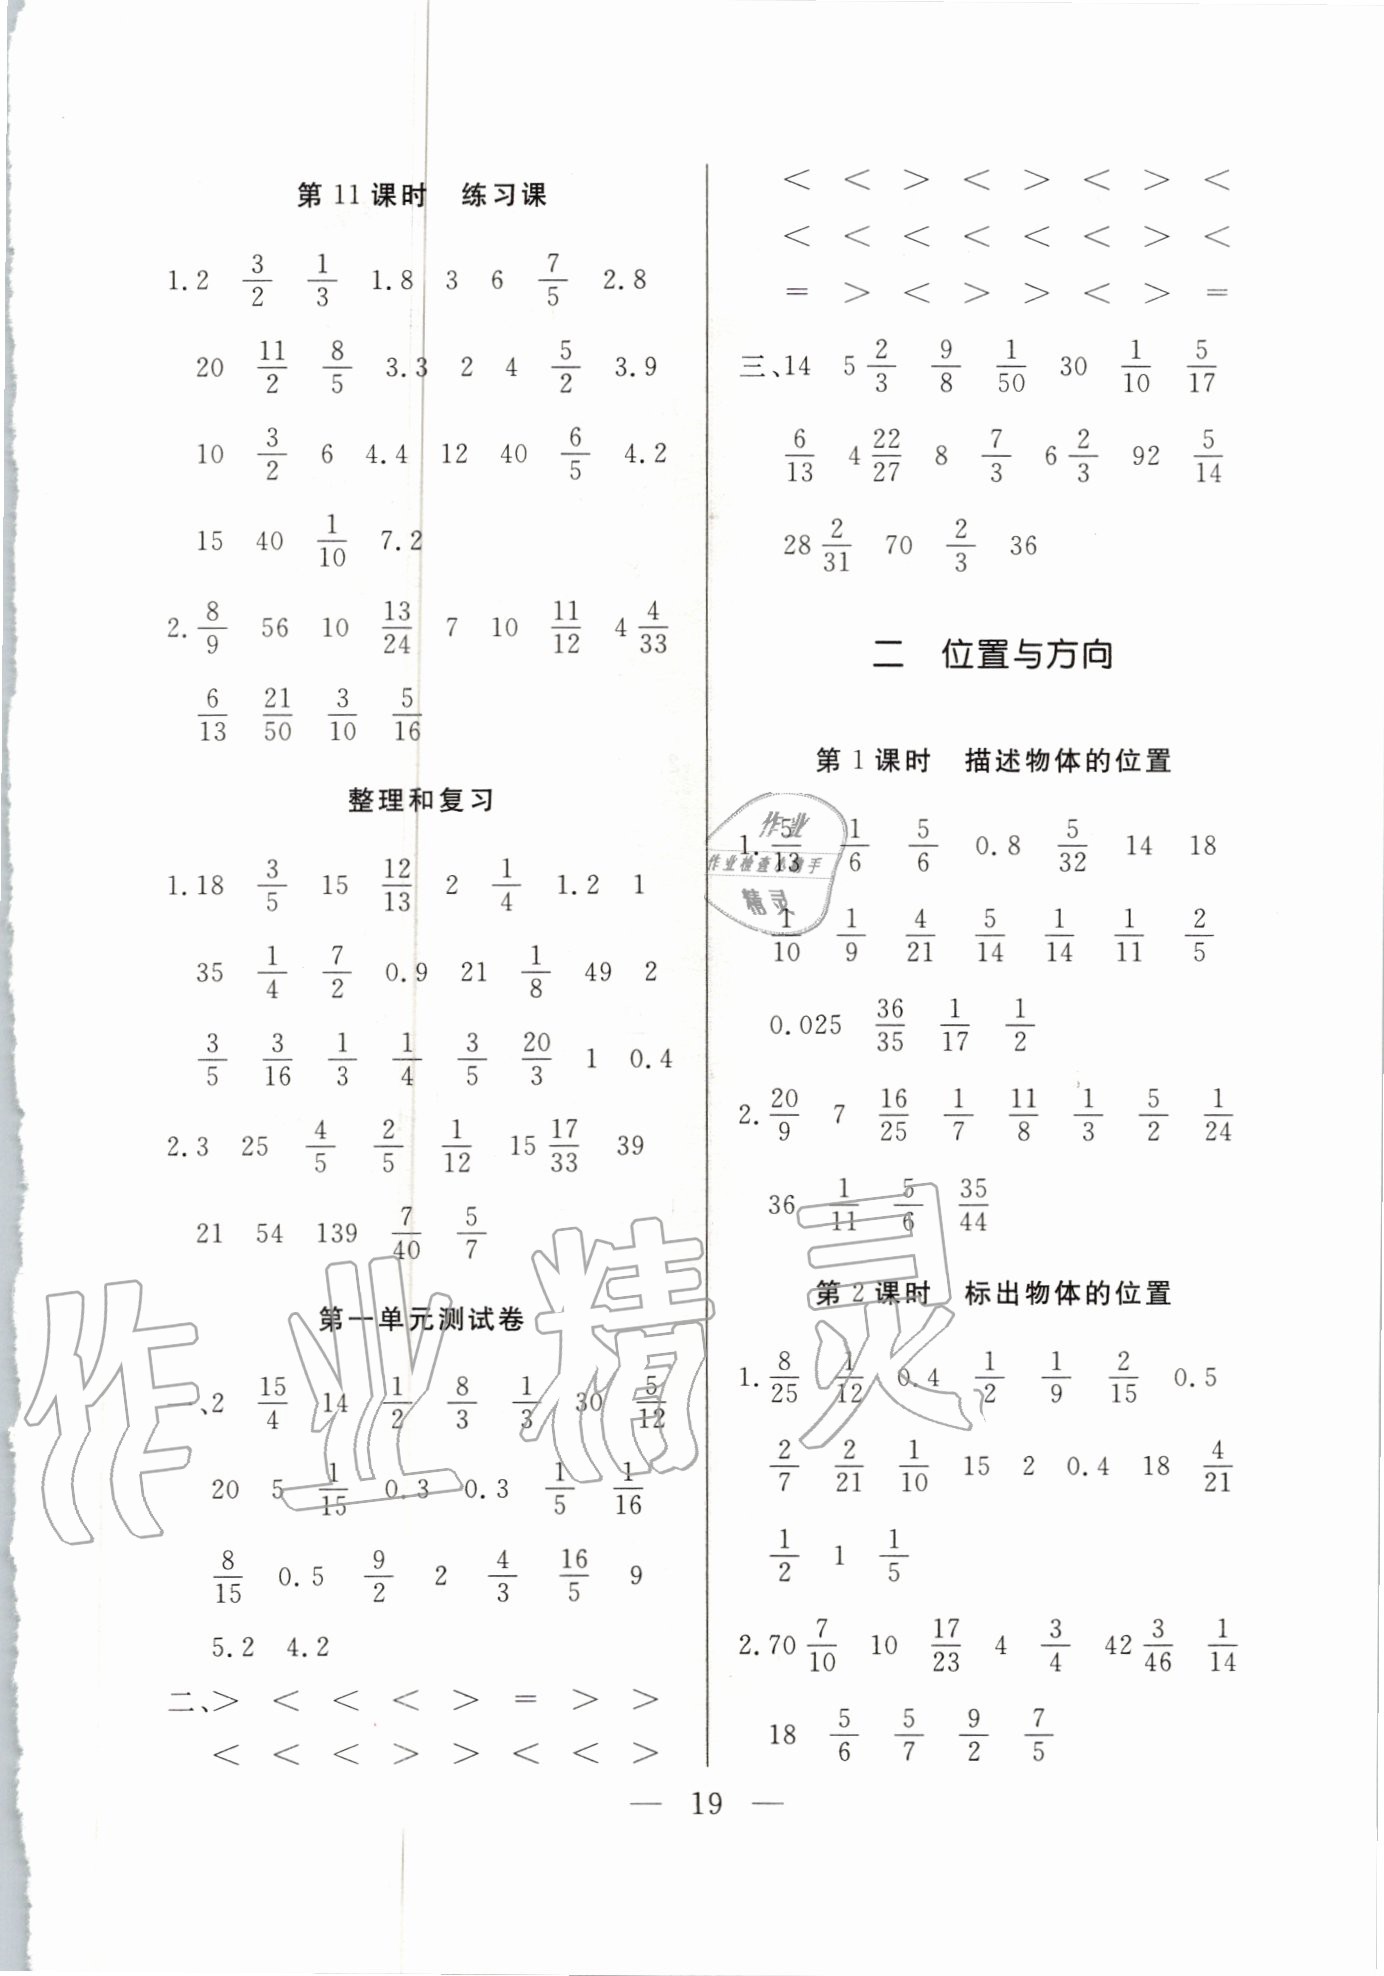 第 11 课时 练习课
1. 2 3/2 1/3 1.8 3 6 7/5 2.8
20 11/2 8/5 3.3 2 4 5/2 3.9
10 3/2 6 4.4 12 40 6/5 4.2
15 40 1/10 7.2
2. 8/9 56 10 13/24 7 10 11/12 4 4/33
6/13 21/50 3/10 5/16
整理和复习
1. 18 3/5 15 12/13 2 1/4 1.2 1
35 1/4 7/2 0.9 21 1/8 49 2
3/5 3/16 1/3 1/4 3/5 20/3 1 0.4
2. 3 25 4/5 2/5 1/12 15 17/33 39
21 54 139 7/40 5/7
第一单元测试卷
、2 15/4 14 1/2 8/3 1/3 30 5/12
20 5 1/15 0.3 0.3 1/5 1/16
8/15 0.5 9/2 2 4/3 16/5 9
5.2 4.2
二、> < < < > = > >
< < < > > < < >
< < > < > < > <
< < < < < < > <
= > < > > < > =
三、14 5 2/3 9/8 1/50 30 1/10 5/17
6/13 4 22/27 8 7/3 6 2/3 92 5/14
28 2/31 70 2/3 36
二 位置与方向
第 1 课时 描述物体的位置
1. 5/13 1/6 5/6 0.8 5/32 14 18
1/10 1/9 4/21 5/14 1/14 1/11 2/5
0.025 36/35 1/17 1/2
2. 20/9 7 16/25 1/7 11/8 1/3 5/2 1/24
36 1/11 5/6 35/44
第 2 课时 标出物体的位置
1. 8/25 1/12 0.4 1/2 1/9 2/15 0.5
2/7 2/21 1/10 15 2 0.4 18 4/21
1/2 1 1/5
2. 70 7/10 10 17/23 4 3/4 42 3/46 1/14
18 5/6 5/7 9/2 7/5
— 19 —
作业
作业检查小助手
精灵
作业精灵